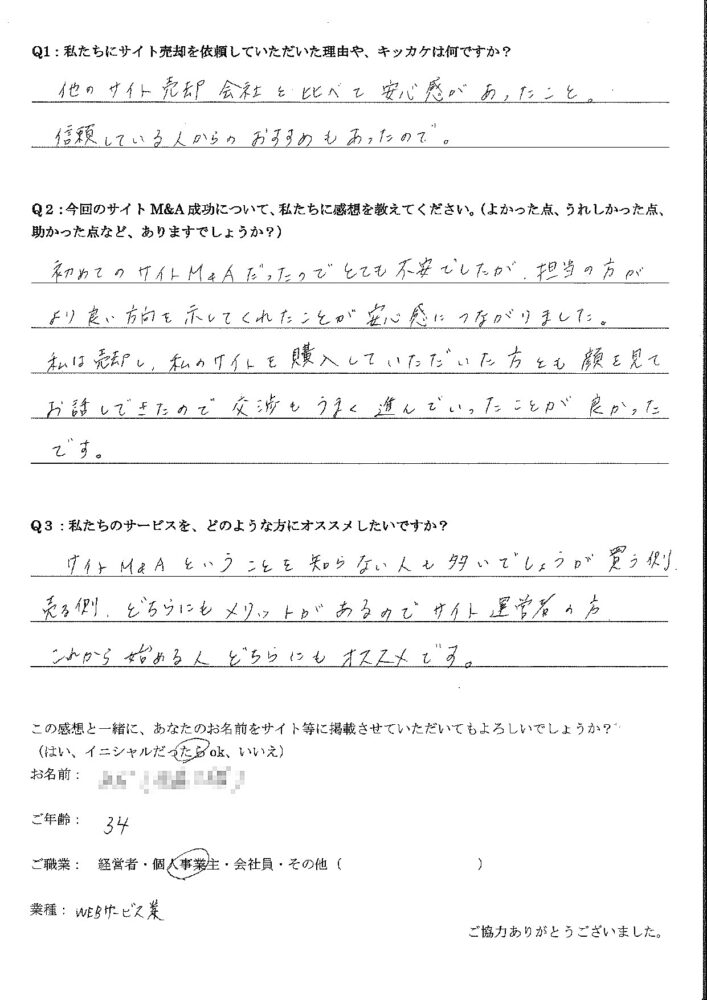 Q1：私たちにサイト売却を依頼していただいた理由や、キッカケは何ですか？
他のサイト売却会社と比べて安心感があったこと。
信頼している人からのおすすめもあったので。
Q２：今回のサイト M&A 成功について、私たちに感想を教えてください。（よかった点、うれしかった点、
助かった点など、ありますでしょうか？）
初めてのサイトM&Aだったのでとても不安でしたが、担当の方が
より良い方向を示してくれたことが安心感につながりました。
私は売却し、私のサイトを購入していただいた方とも顔を見て
お話しできたので交渉もうまく進んでいったことが良かった
です。
Q３：私たちのサービスを、どのような方にオススメしたいですか？
サイトM&Aということを知らない人も多いでしょうが買う側、
売る側、どちらにもメリットがあるのでサイト運営者の方
これから始める人どちらにもオススメです。
この感想と一緒に、あなたのお名前をサイト等に掲載させていただいてもよろしいでしょうか？
（はい、イニシャルだったら ok、いいえ）
お名前：
ご年齢： 34
ご職業： 経営者・個人事業主・会社員・その他（ ）
業種： WEBサービス業
ご協力ありがとうございました。